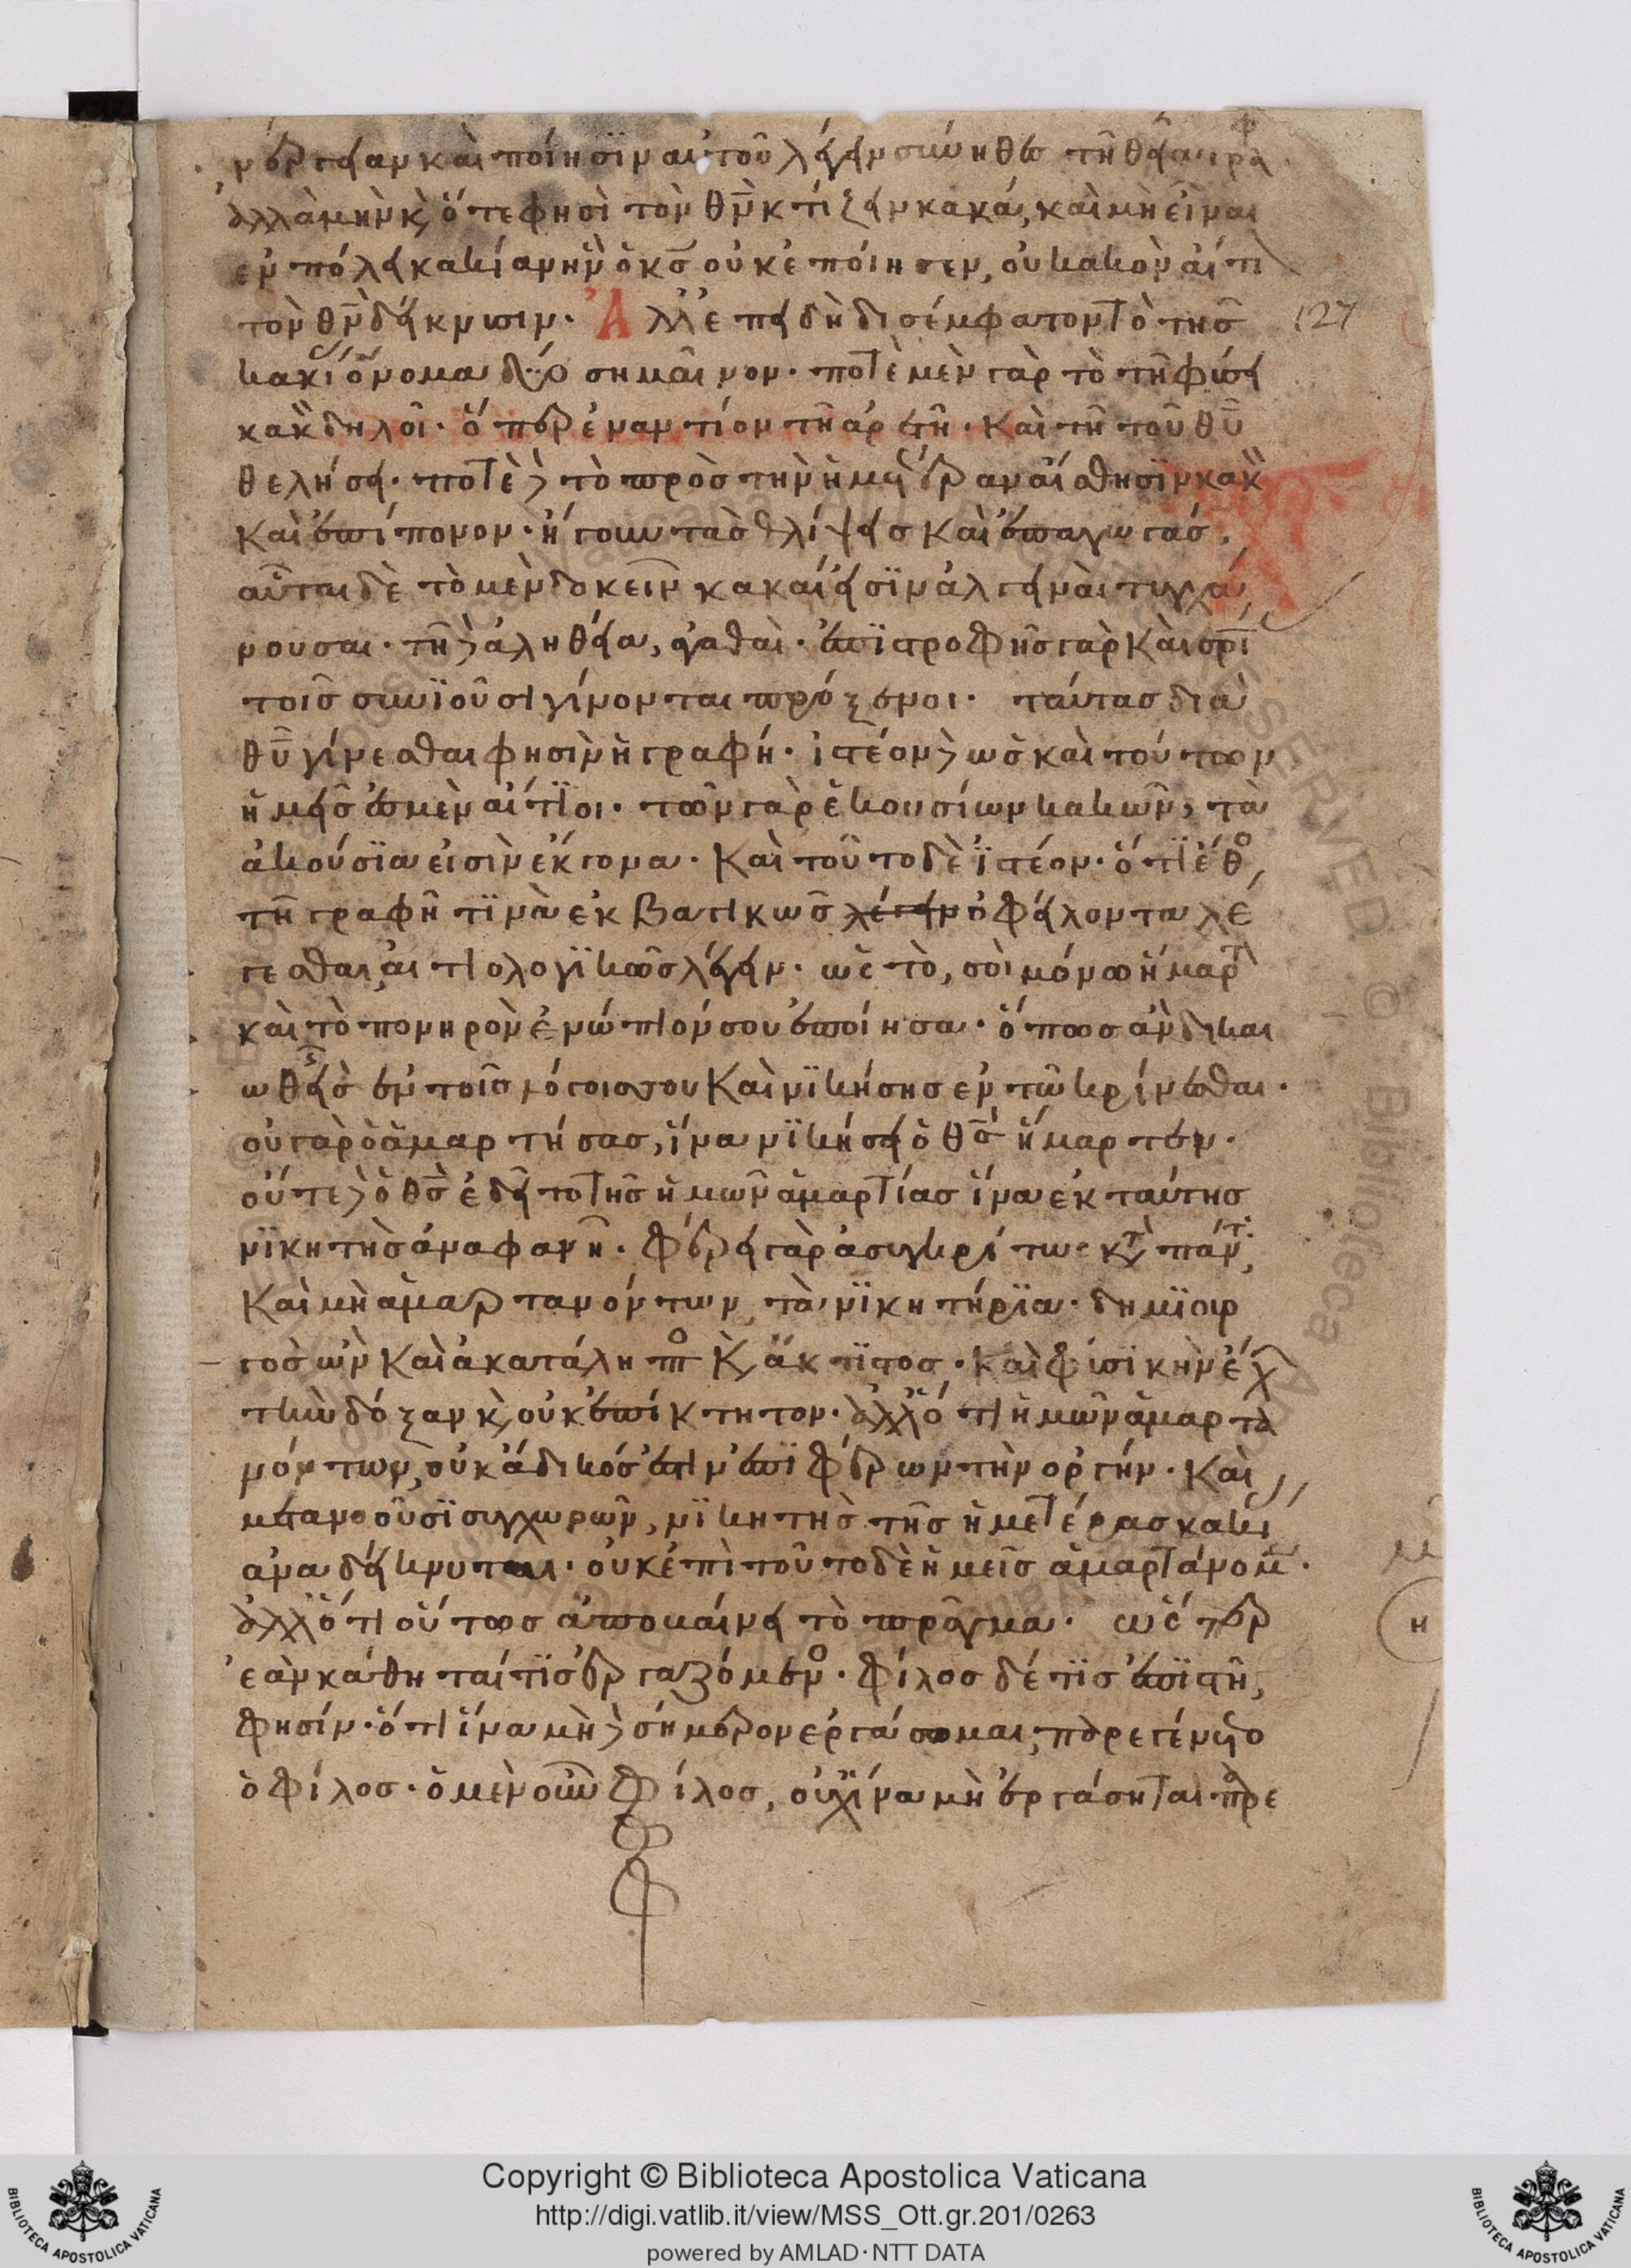 νέργειαν καὶ ποίησιν αὐτοῦ λέγειν σύνηθες τῆ θεία γρα
ἀλλὰ μὴν κ, ὅτε φησὶ τὸν θν κτίζειν κακά, καὶ μὴ εἶναι
ἐν πόλει κακίαν ἣν ὁ κς οὐκ ἐποίησεν, οὐ κακῶν αἴτι
τὸν θν δείκνυσιν. Ἀλλ' ἐπειδὴ δισέμφατον τὸ τῆς
κακί ὄνομα δύο σημαῖνον. ποτὲ μὲν γὰρ τὸ τῆ φύσει
κακὸν δηλοῖ. ὅπερ ἐναντίον τῆ ἀρετῆ. καὶ τῆ τοῦ θυ
θελήσει. ποτὲ δὲ τὸ πρὸς τὴν ἡμετέραν αἴσθησιν κακὸν
καὶ ἐπίπονον. ἤγουν τὰς θλίψεις καὶ ἐπαγωγάς.
αὗται δὲ τὸ μὲν δοκεῖν κακαί εἰσιν ἀλγειναὶ τυγχά
νουσαι. τῆ δὲ ἀληθεία, ἀγαθαί. ἐπιστροφῆς γὰρ καὶ σρι
τοῖς συνιοῦσι γίνονται πρόξενοι. ταύτας διὰ
θυ γίνεσθαι φησὶν ἡ γραφή. ἰστέον δὲ ὡς καὶ τούτων
ἡμεῖς ἐσμὲν αἴτιοι. τῶν γὰρ ἑκουσίων κακῶν, τὰ
ἀκούσια εἰσὶν ἔκγονα. καὶ τοῦτο δὲ ἰστέον. ὅτι ἔθο
τῆ γραφῆ τινὰ ἐκβατικῶς λέγειν ὀφείλοντα λέ
γεσθαι, αἰτιολογικῶς λέγειν. ὡς τὸ, σοὶ μόνω ἥμαρτ
καὶ τὸ πονηρὸν ἐνώπιόν σου ἐποίησα. ὅπως ἂν δικαι
ωθεῖς ἐν τοῖς λόγοις σου καὶ νικήσης ἐν τῶ κρίνεσθαι.
οὐ γὰρ ὁ ἁμαρτήσας, ἵνα νικήσει ὁ θς ἥμαρτεν.
οὔτε δὲ ὁ θς ἐδεῖτο τῆς ἡμῶν ἁμαρτίας ἵνα ἐκ ταύτης
νικητὴς ἀναφανῆ. φέρει γὰρ ἀσυγκρίτως κτ πάντ
καὶ μὴ ἁμαρτανόντων, τὰ νικητήρια. δημιουρ
γὸς ὢν καὶ ἀκατάληπτο κ, ἄκτιστος. καὶ φυσικὴν ἔχ
τὴν δόξαν κ, οὐκ ἐπίκτητον. ἀλλ' ὅτι ἡμῶν ἁμαρτα
νόντων, οὐκ ἄδικός ἐστιν ἐπιφέρων τὴν ὀργήν. καὶ
μετανοοῦσι συγχωρῶν, νικητὴς τῆς ἡμετέρας κακί
ἀναδείκνυται. οὐκ ἐπὶ τοῦτο δὲ ἡμεῖς ἁμαρτάνομ.
ἀλλ' ὅτι οὕτως ἀποβαίνει τὸ πρᾶγμα. ὥσπερ
ἐὰν κάθηται τίς ἐργαζόμενο. φίλος δέ τις ἐπιστῆ,
φησίν. ὅτι ἵνα μὴ δὲ σήμερον ἐργάσομαι, παρεγένετο
ὁ φίλος. ὁ μὲν οὖν φίλος, οὐχ ἵνα μὴ ἐργάσηται παρε
127
Copyright © Biblioteca Apostolica Vaticana
http://digi.vatlib.it/view/MSS_Ott.gr.201/0263
powered by AMLAD·NTT DATA